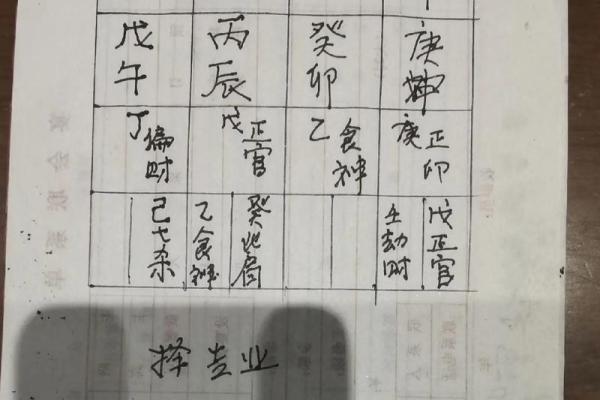 戊 丙 癸 庚
午 辰 卯
丁 偏财 戊 正官 乙 食神 庚 正印
己七杀 乙食神 癸比肩 壬劫财 戊正官
择专业